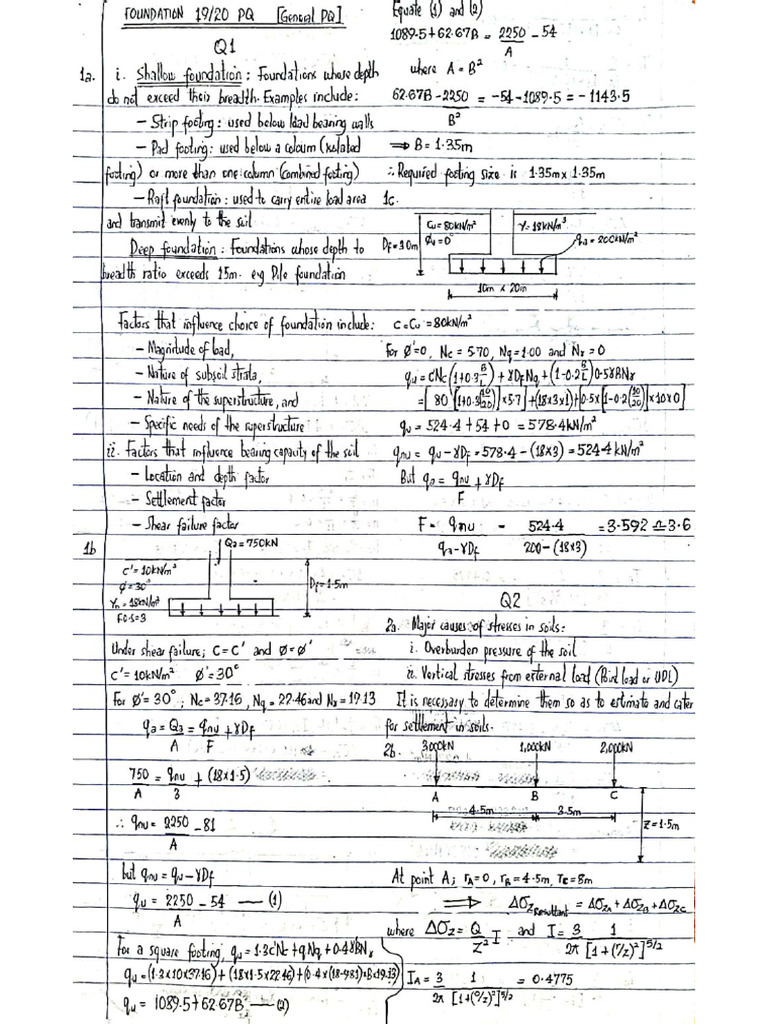 FOUNDATION 19/20 PQ [General PQ]
Q1
1a. i. Shallow foundation: Foundations whose depth
do not exceed their breadth. Examples include:
- Strip footing: used below load bearing walls
- Pad footing: used below a column (isolated
footing) or more than one column (combined footing)
- Raft foundation: used to carry entire load area
and transmit evenly to the soil
Deep foundation: Foundations whose depth to
breadth ratio exceeds 15m. eg Pile foundation
Factors that influence choice of foundation include:
- Magnitude of load,
- Nature of subsoil strata,
- Nature of the superstructure, and
- Specific needs of the superstructure
ii. Factors that influence bearing capacity of the soil
- Location and depth factor
- Settlement factor
- Shear failure factor
1b
Qa = 750KN
C' = 10KN/m²
Ø = 30°
γn = 18KN/m³
F.O.S = 3
Df = 1.5m
Under shear failure; C = C' and Ø = Ø'
C' = 10KN/m² Ø' = 30°
For Ø' = 30°; Nc = 37.16, Nq = 22.46 and Nγ = 19.13
qa = Qa/A = qnu/F + γDf
750/A = qnu/3 + (18x1.5)
∴ qnu = 2250/A - 81
but qnu = qu - γDf
qu = 2250/A - 54 — (1)
For a square footing, qu = 1.3cNc + qNq + 0.4γBNγ
qu = (1.3x10x37.16) + (18x1.5x22.46) + (0.4x(18-9.81)xBx19.13)
qu = 1089.5 + 62.67B — (2)
Equate (1) and (2)
1089.5 + 62.67B = 2250/A - 54
where A = B²
62.67B - 2250/B² = -54 - 1089.5 = -1143.5
⇒ B = 1.35m
∴ Required footing size is 1.35m x 1.35m
1c.
Cu = 80KN/m²
Øu = 0°
γ = 18KN/m³
qa = 200KN/m²
Df = 3.0m
10m x 20m
C = Cu = 80KN/m²
For Ø' = 0, Nc = 5.70, Nq = 1.00 and Nγ = 0
qu = CNc(1+0.3B/L) + γDfNq + (1-0.2B/L)0.5γBNγ
= [80(1+0.3(10/20))x5.7] + (18x3x1) + [0.5x[1-0.2(10/20)]x10x0]
qu = 524.4 + 54 + 0 = 578.4KN/m²
qnu = qu - γDf = 578.4 - (18x3) = 524.4KN/m²
But qa = qnu/F + γDf
F = qnu/(qa-γDf) = 524.4/(200-(18x3)) = 3.592 ≏ 3.6
Q2
2a. Major causes of stresses in soils:
i. Overburden pressure of the soil
ii. Vertical stresses from external load (Point load or UDL)
It is necessary to determine them so as to estimate and cater
for settlement in soils.
2b. 3000KN 1,000KN 2,000KN
A B C
4.5m 3.5m
Z = 1.5m
At point A; rA = 0, rB = 4.5m, rc = 8m
⇒ ΔσZ Resultant = ΔσZA + ΔσZB + ΔσZC
where ΔσZ = Q/Z² I and I = 3/2π 1/[1+(r/z)²]^5/2
IA = 3/2π 1/[1+(0/z)²]^5/2 = 0.4775